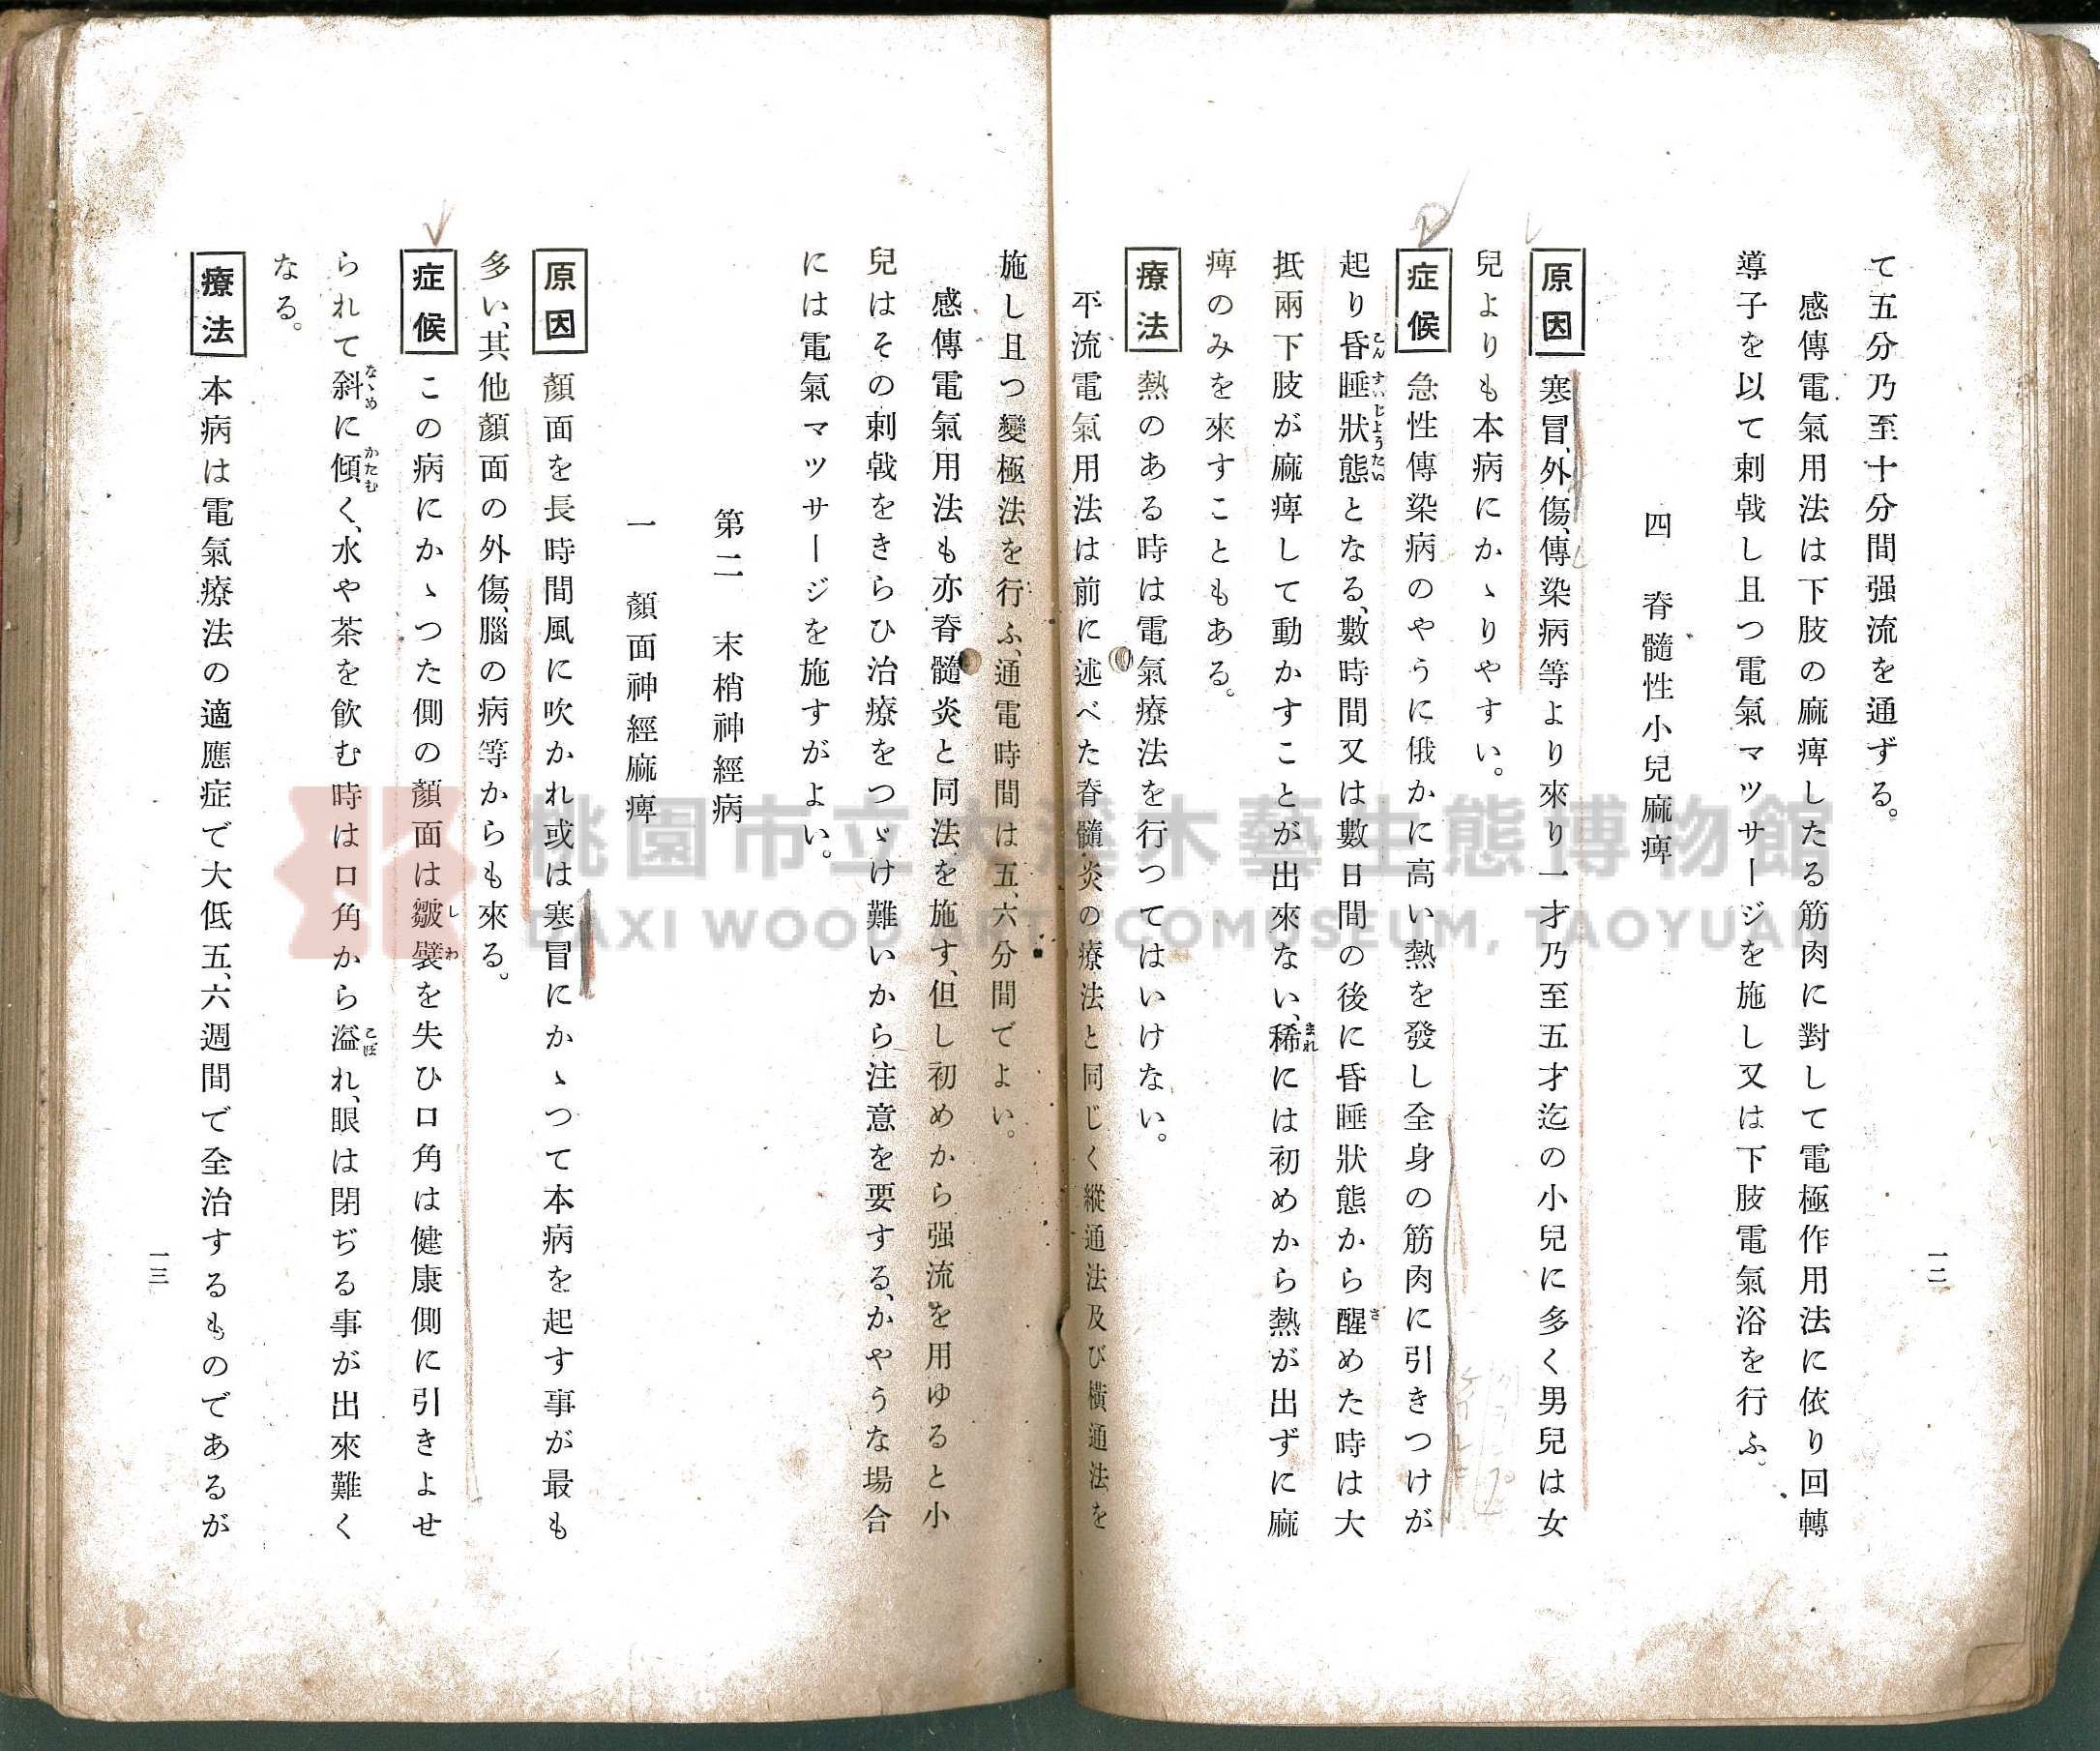 て五分乃至十分間强流を通ずる。
感傳電氣用法は下肢の麻痺したる筋肉に對して電極作用法に依り回轉
導子を以て刺戟し且つ電氣マツサージを施し又は下肢電氣浴を行ふ。
四　脊髓性小兒麻痺
原因　寒冒、外傷、傳染病等より來り一才乃至五才迄の小兒に多く男兒は女
兒よりも本病にかゝりやすい。
症候　急性傳染病のやうに俄かに高い熱を發し全身の筋肉に引きつけが
起り昏睡狀態となる、數時間又は數日間の後に昏睡狀態から醒めた時は大
こんすいじようたい
さ
抵兩下肢が麻痺して動かすことが出來ない、稀には初めから熱が出ずに麻
まれ
痺のみを來すこともある。
療法　熱のある時は電氣療法を行つてはいけない。
平流電氣用法は前に述べた脊髓炎の療法と同じく縱通法及び橫通法を
一二
施し且つ變極法を行ふ、通電時間は五、六分間でよい。
感傳電氣用法も亦脊髓炎と同法を施す、但し初めから强流を用ゆると小
兒はその刺戟をきらひ治療をつゞけ難いから注意を要する、かやうな場合
には電氣マツサージを施すがよい。
第二　末梢神經病
一　顏面神經麻痺
原因　顏面を長時間風に吹かれ或は寒冒にかゝつて本病を起す事が最も
多い、其他顏面の外傷、腦の病等からも來る。
症候　この病にかゝつた側の顏面は皺襞を失ひ口角は健康側に引きよせ
しわ
られて斜に傾く、水や茶を飮む時は口角から溢れ、眼は閉ぢる事が出來難く
なゝめ
かたむ
こぼ
なる。
療法　本病は電氣療法の適應症で大低五、六週間で全治するものであるが
一三
桃園市立大溪木藝生態博物館
DAXI WOOD ART ECOMUSEUM, TAOYUAN